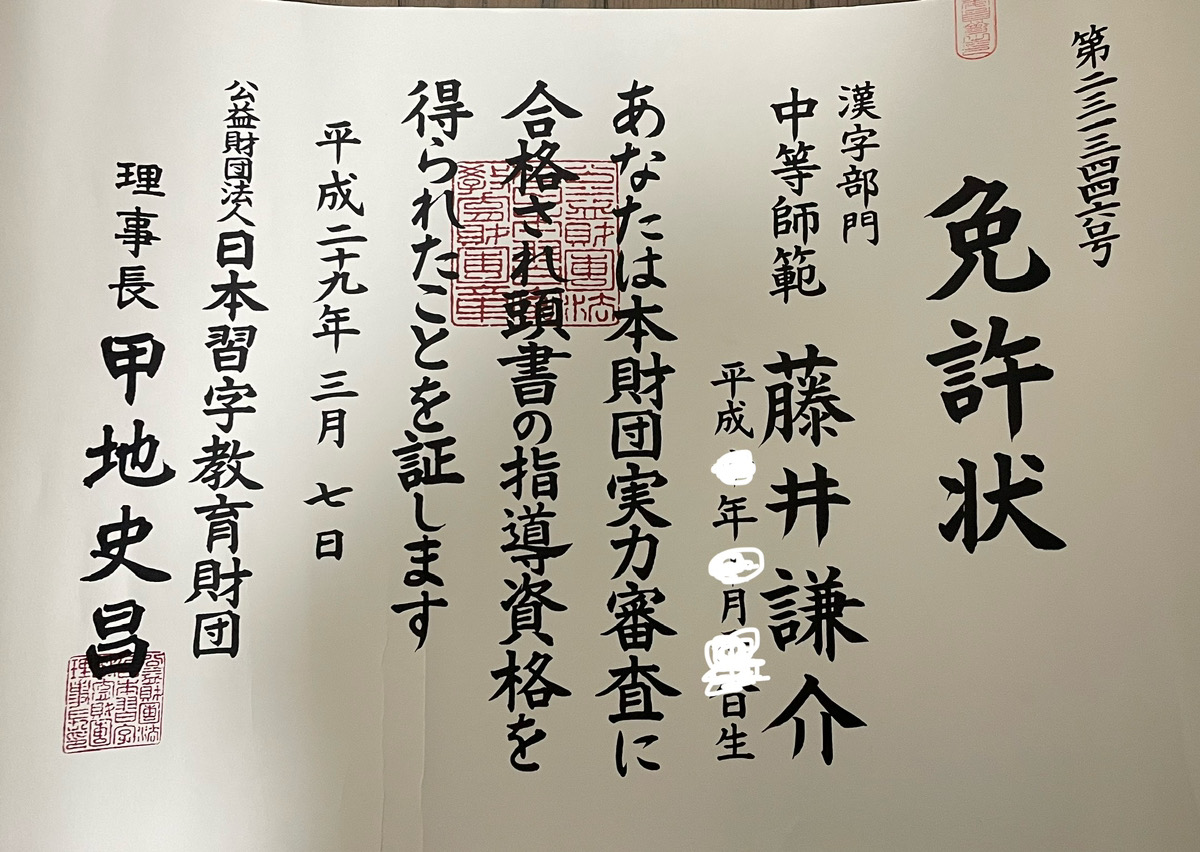 第二三一三四四六号
免許状
漢字部門
中等師範 藤井謙介
平成 年 月 日生
あなたは本財団実力審査に
合格され頭書の指導資格を
得られたことを証します
平成二十九年三月七日
公益財団法人日本習字教育財団
理事長 甲地史昌